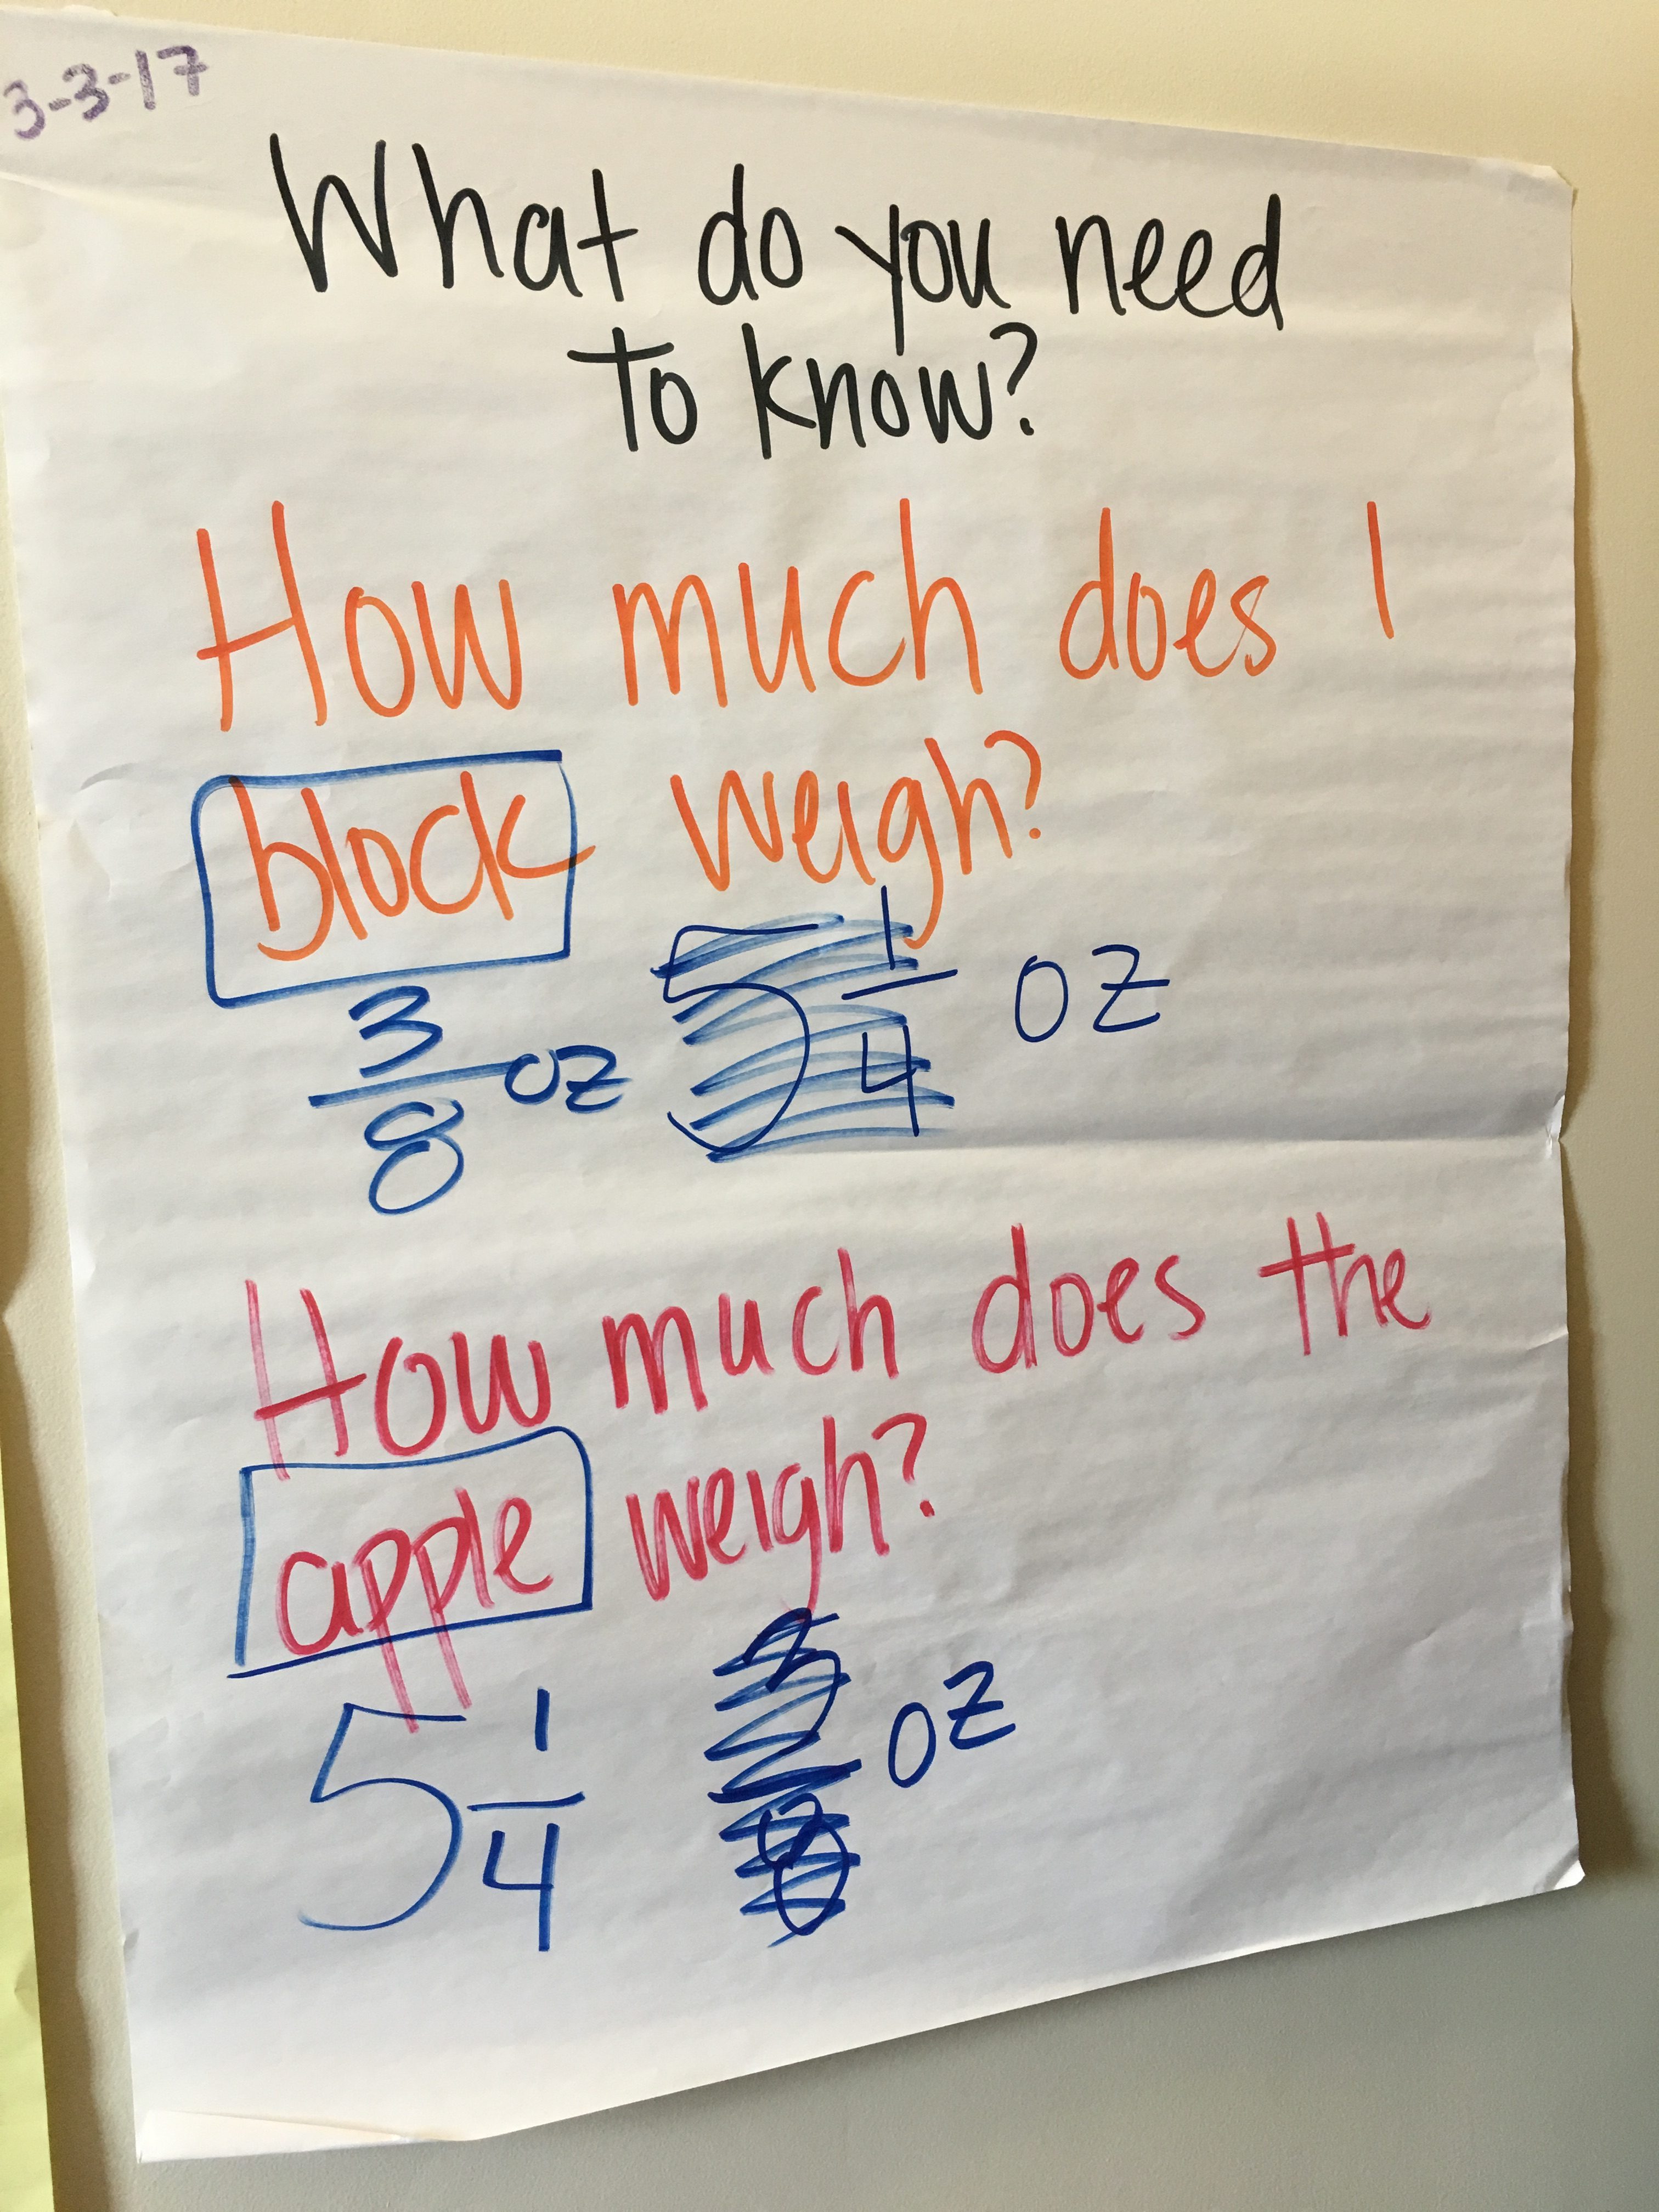 3-3-17
What do you need
to know?
How much does 1
block weigh?
3/8 oz 5 1/4 oz
How much does the
apple weigh?
5 1/4 oz